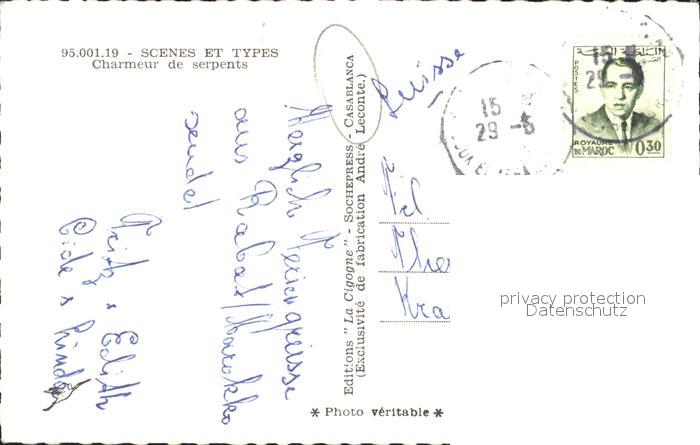 95.001.19 - SCENES ET TYPES
Charmeur de serpents
Herzlich Feriengrüsse
aus Rabat/Marokko
sendet
Fritz & Edith
Editions "La Cigogne" - SOCHEPRESS - CASABLANCA
(Exclusivité de fabrication André Leconte.)
* Photo véritable *
Suisse
15
29 -5
15
29
POSTES
ROYAUME
DU MAROC
0.30
Frl
Kra
privacy protection
Datenschutz